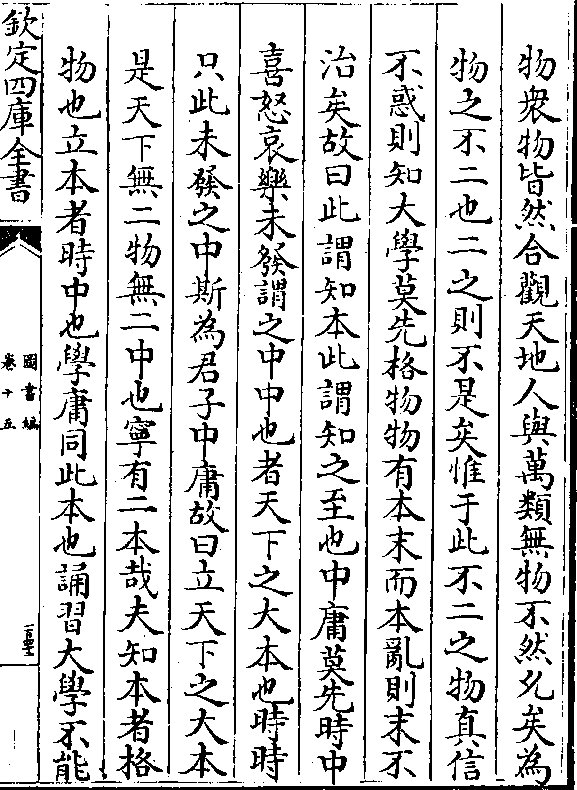 物衆物皆然合觀天地人與萬類無物不然久矣為
物之不二也二之則不是矣惟于此不二之物真信
不惑則知大學莫先格物物有本末而本亂則末不
治矣故曰此謂知本此謂知之至也中庸莫先時中
喜怒哀樂未發謂之中中也者天下之大本也時時
只此未發之中斯為君子中庸故曰立天下之大本
是天下無二物無二中也寧有二本哉夫知本者格
物也立本者時中也學庸同此本也誦習大學不能
欽定四庫全書
圖書編
卷十五